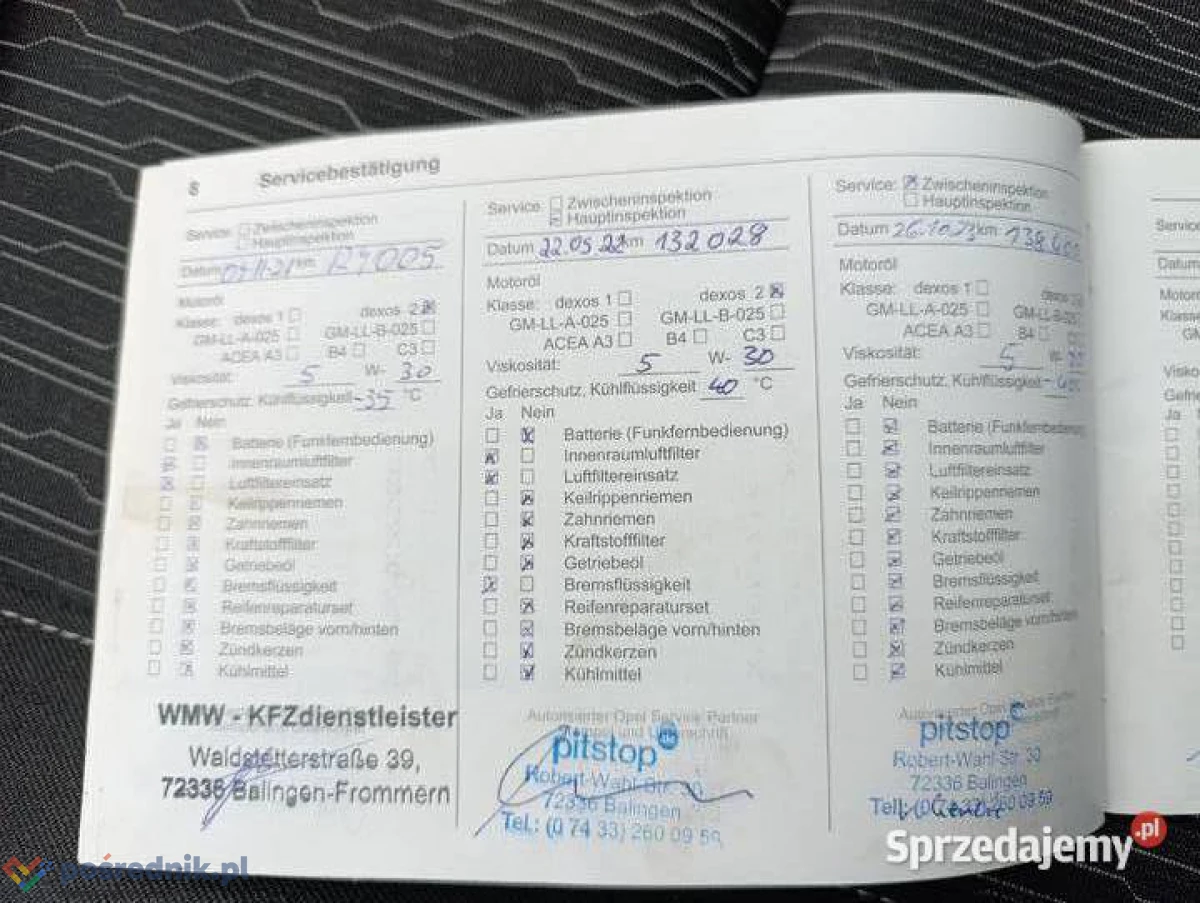 8 Servicebestätigung
Service: Zwischeninspektion
Hauptinspektion
Datum km
Motoröl
Klasse: dexos 1 dexos 2
GM-LL-A-025 GM-LL-B-025
ACEA A3 B4 C3
Viskosität: 5 W- 30
Gefrierschutz, Kühlflüssigkeit -35 °C
Ja Nein
Batterie (Funkfernbedienung)
Innenraumluftfilter
Luftfiltereinsatz
Keilrippenriemen
Zahnriemen
Kraftstofffilter
Getriebeöl
Bremsflüssigkeit
Reifenreparaturset
Bremsbeläge vorn/hinten
Zündkerzen
Kühlmittel
WMW - KFZdienstleister
Waldstetterstraße 39,
72336 Balingen-Frommern
Service: Zwischeninspektion
Hauptinspektion
Datum 22.05.22 km 132028
Motoröl
Klasse: dexos 1 dexos 2
GM-LL-A-025 GM-LL-B-025
ACEA A3 B4 C3
Viskosität: 5 W- 30
Gefrierschutz, Kühlflüssigkeit 40 °C
Ja Nein
Batterie (Funkfernbedienung)
Innenraumluftfilter
Luftfiltereinsatz
Keilrippenriemen
Zahnriemen
Kraftstofffilter
Getriebeöl
Bremsflüssigkeit
Reifenreparaturset
Bremsbeläge vorn/hinten
Zündkerzen
Kühlmittel
Autorisierter Opel Service Partner
pitstop
Robert-Wahl-Str. 30
72336 Balingen
Tel.: (0 74 33) 260 09 59
Service: Zwischeninspektion
Hauptinspektion
Datum 26.10.23 km
Motoröl
Klasse: dexos 1 dexos
GM-LL-A-025 GM-LL-B-025
ACEA A3 B4
Viskosität: 5 W-
Gefrierschutz, Kühlflüssigkeit
Ja Nein
Batterie (Funkfernbedienung)
Innenraumluftfilter
Luftfiltereinsatz
Keilrippenriemen
Zahnriemen
Kraftstofffilter
Getriebeöl
Bremsflüssigkeit
Reifenreparaturset
Bremsbeläge vorn/hinten
Zündkerzen
Kühlmittel
pitstop
Robert-Wahl-Str. 30
72336 Balingen
Tel.: 260 09 59
pośrednik.pl
Sprzedajemy.pl